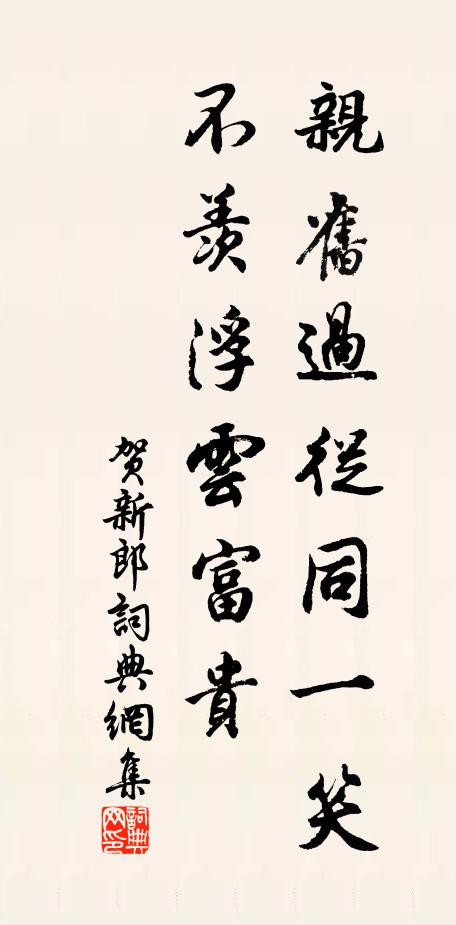 親舊過從同一笑
不羨浮雲富貴
贺新郎詞典網集
詞典
网印